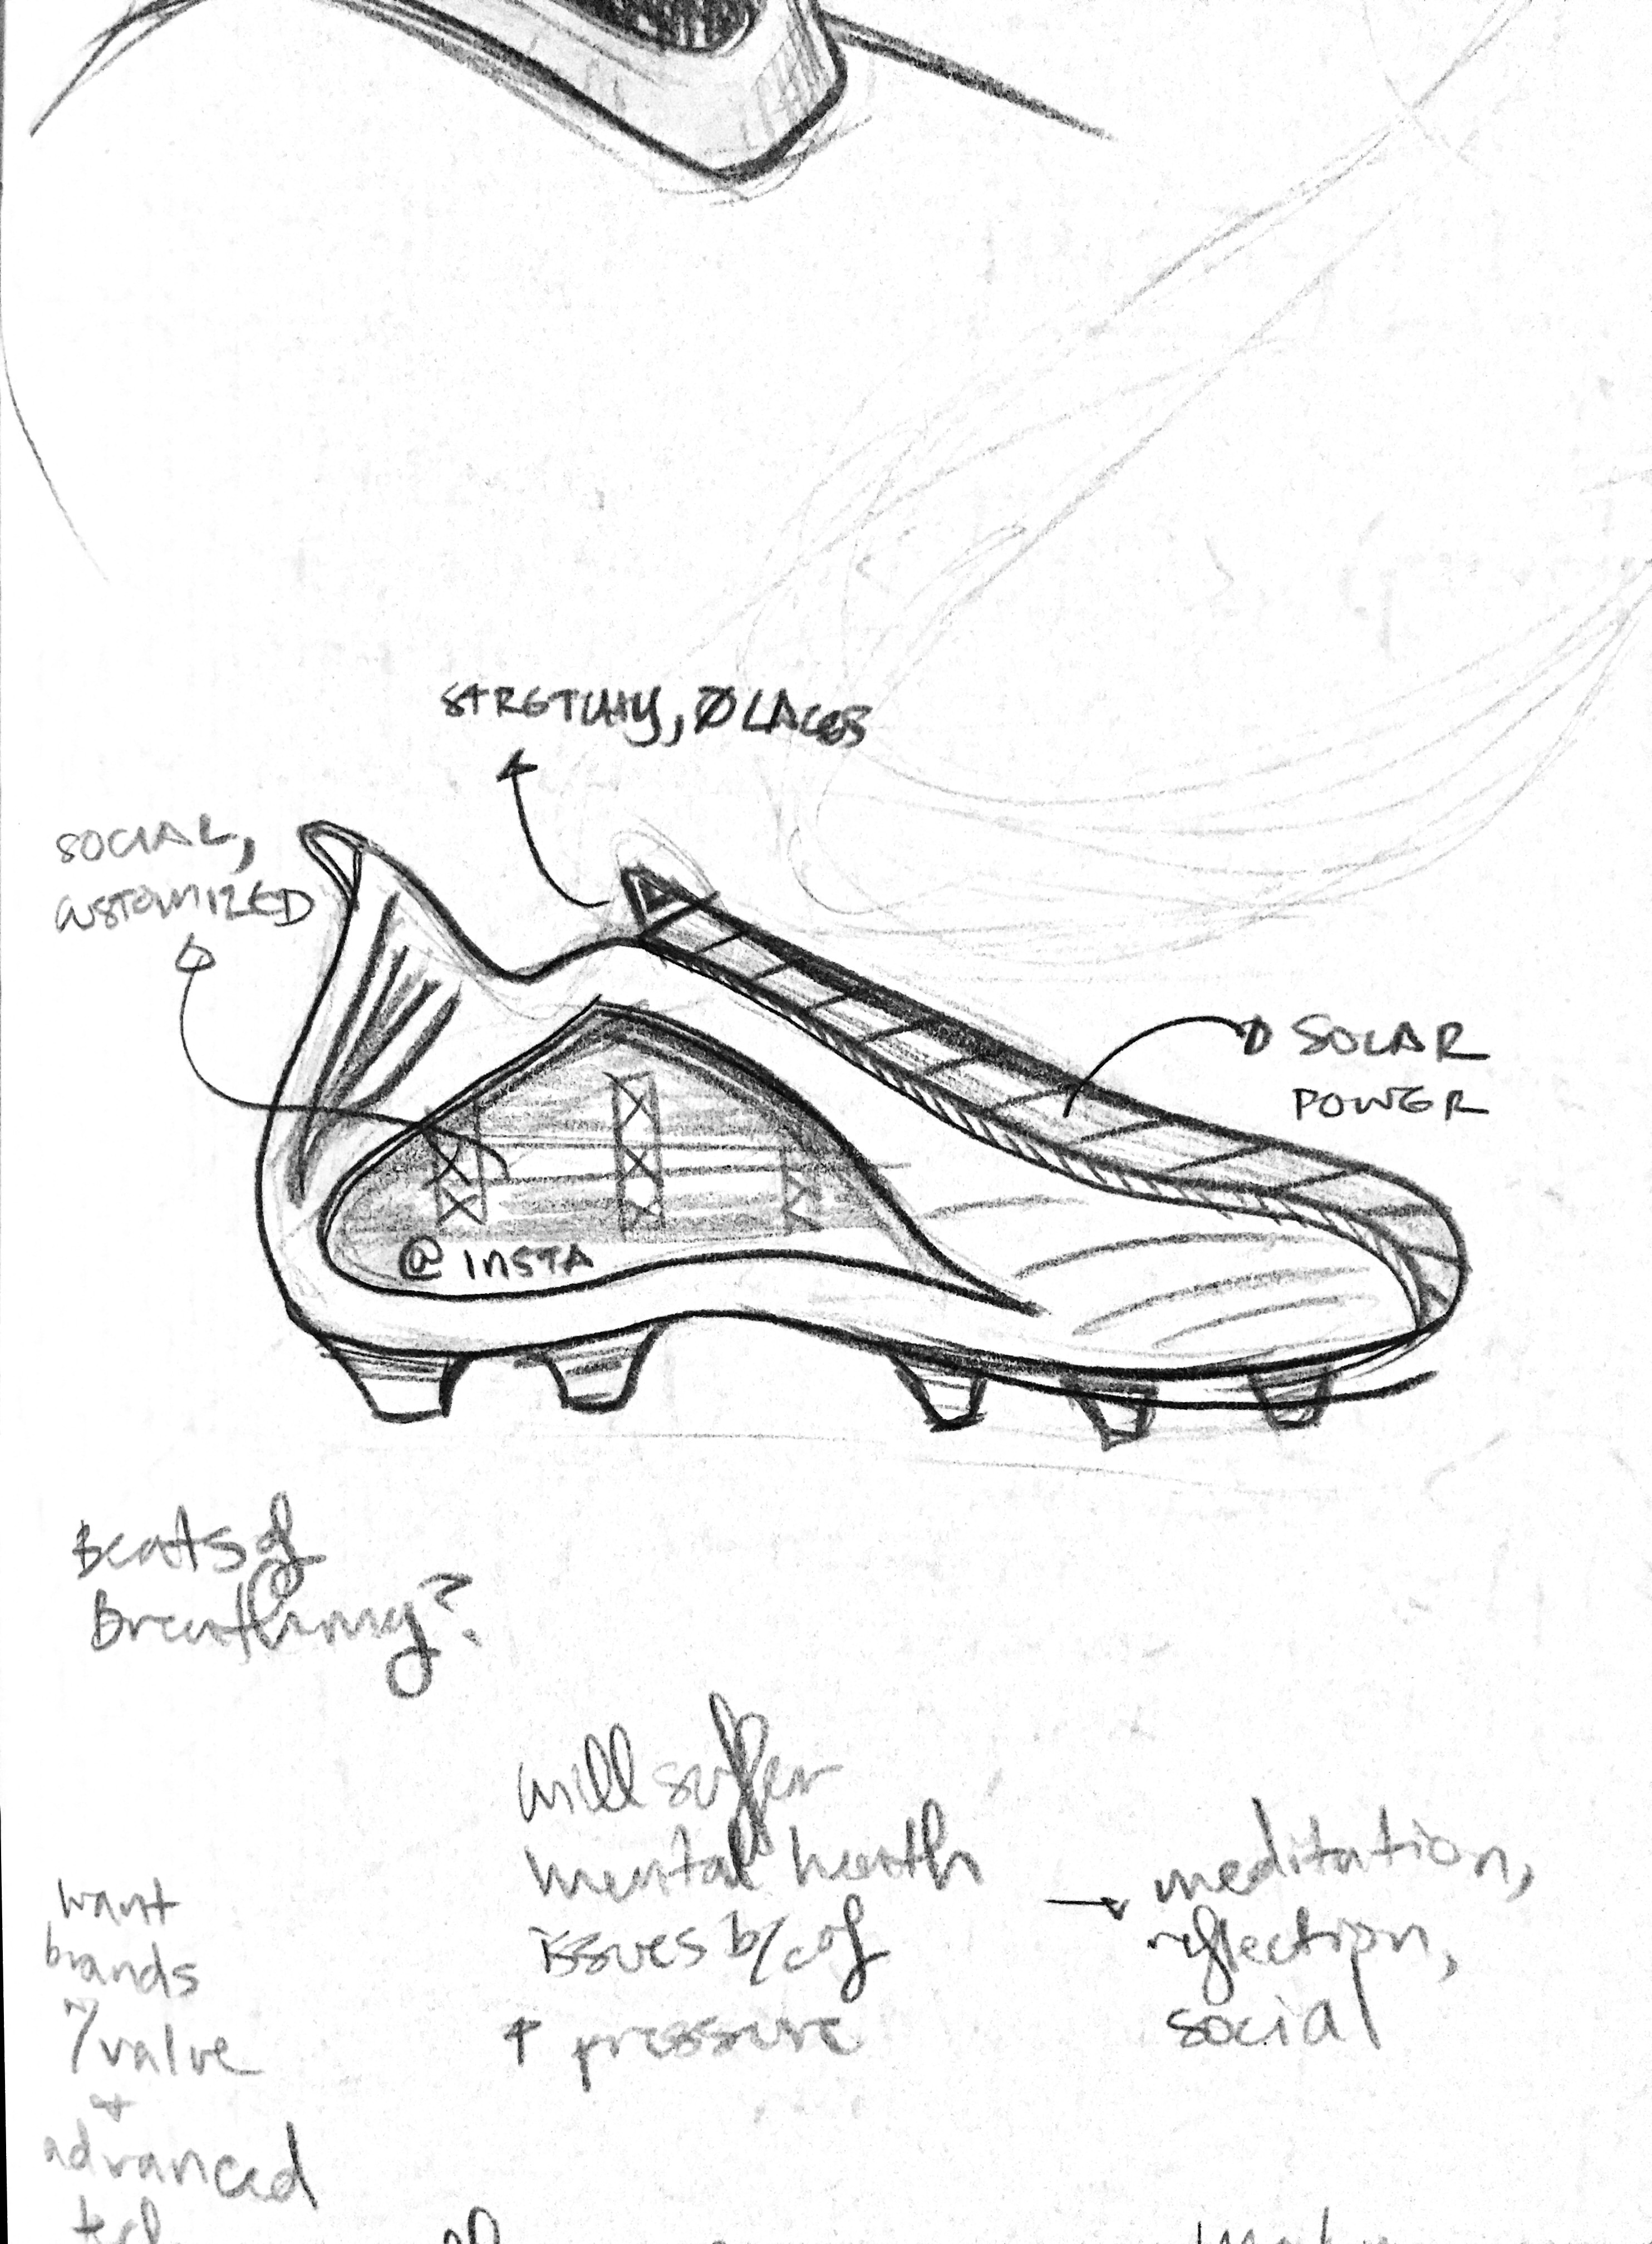 STRETCHY, Ø LACES
SOCIAL,
CUSTOMIZED
SOLAR
POWER
@ INSTA
Beats of
Breathing?
will suffer
mental health
issues b/c of
↑ pressure
→ meditation,
reflection,
social
want
brands
value
+
advanced